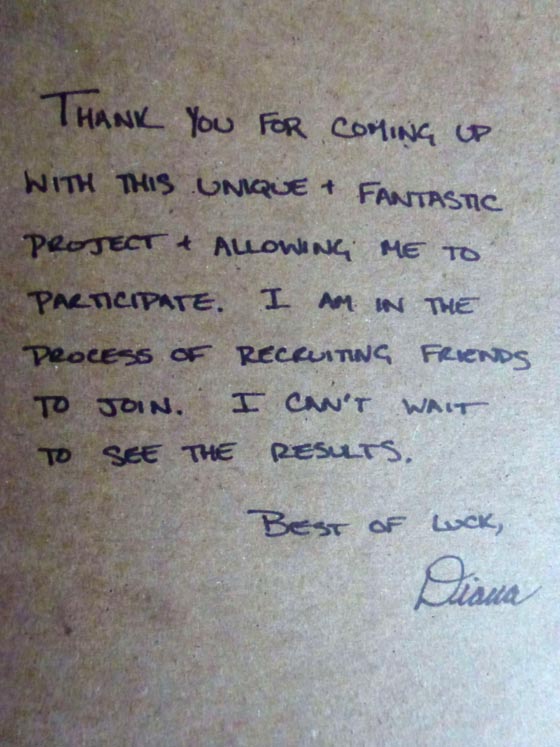 THANK YOU FOR COMING UP
WITH THIS UNIQUE + FANTASTIC
PROJECT + ALLOWING ME TO
PARTICIPATE. I AM IN THE
PROCESS OF RECRUITING FRIENDS
TO JOIN. I CAN'T WAIT
TO SEE THE RESULTS.
BEST OF LUCK,
Diana